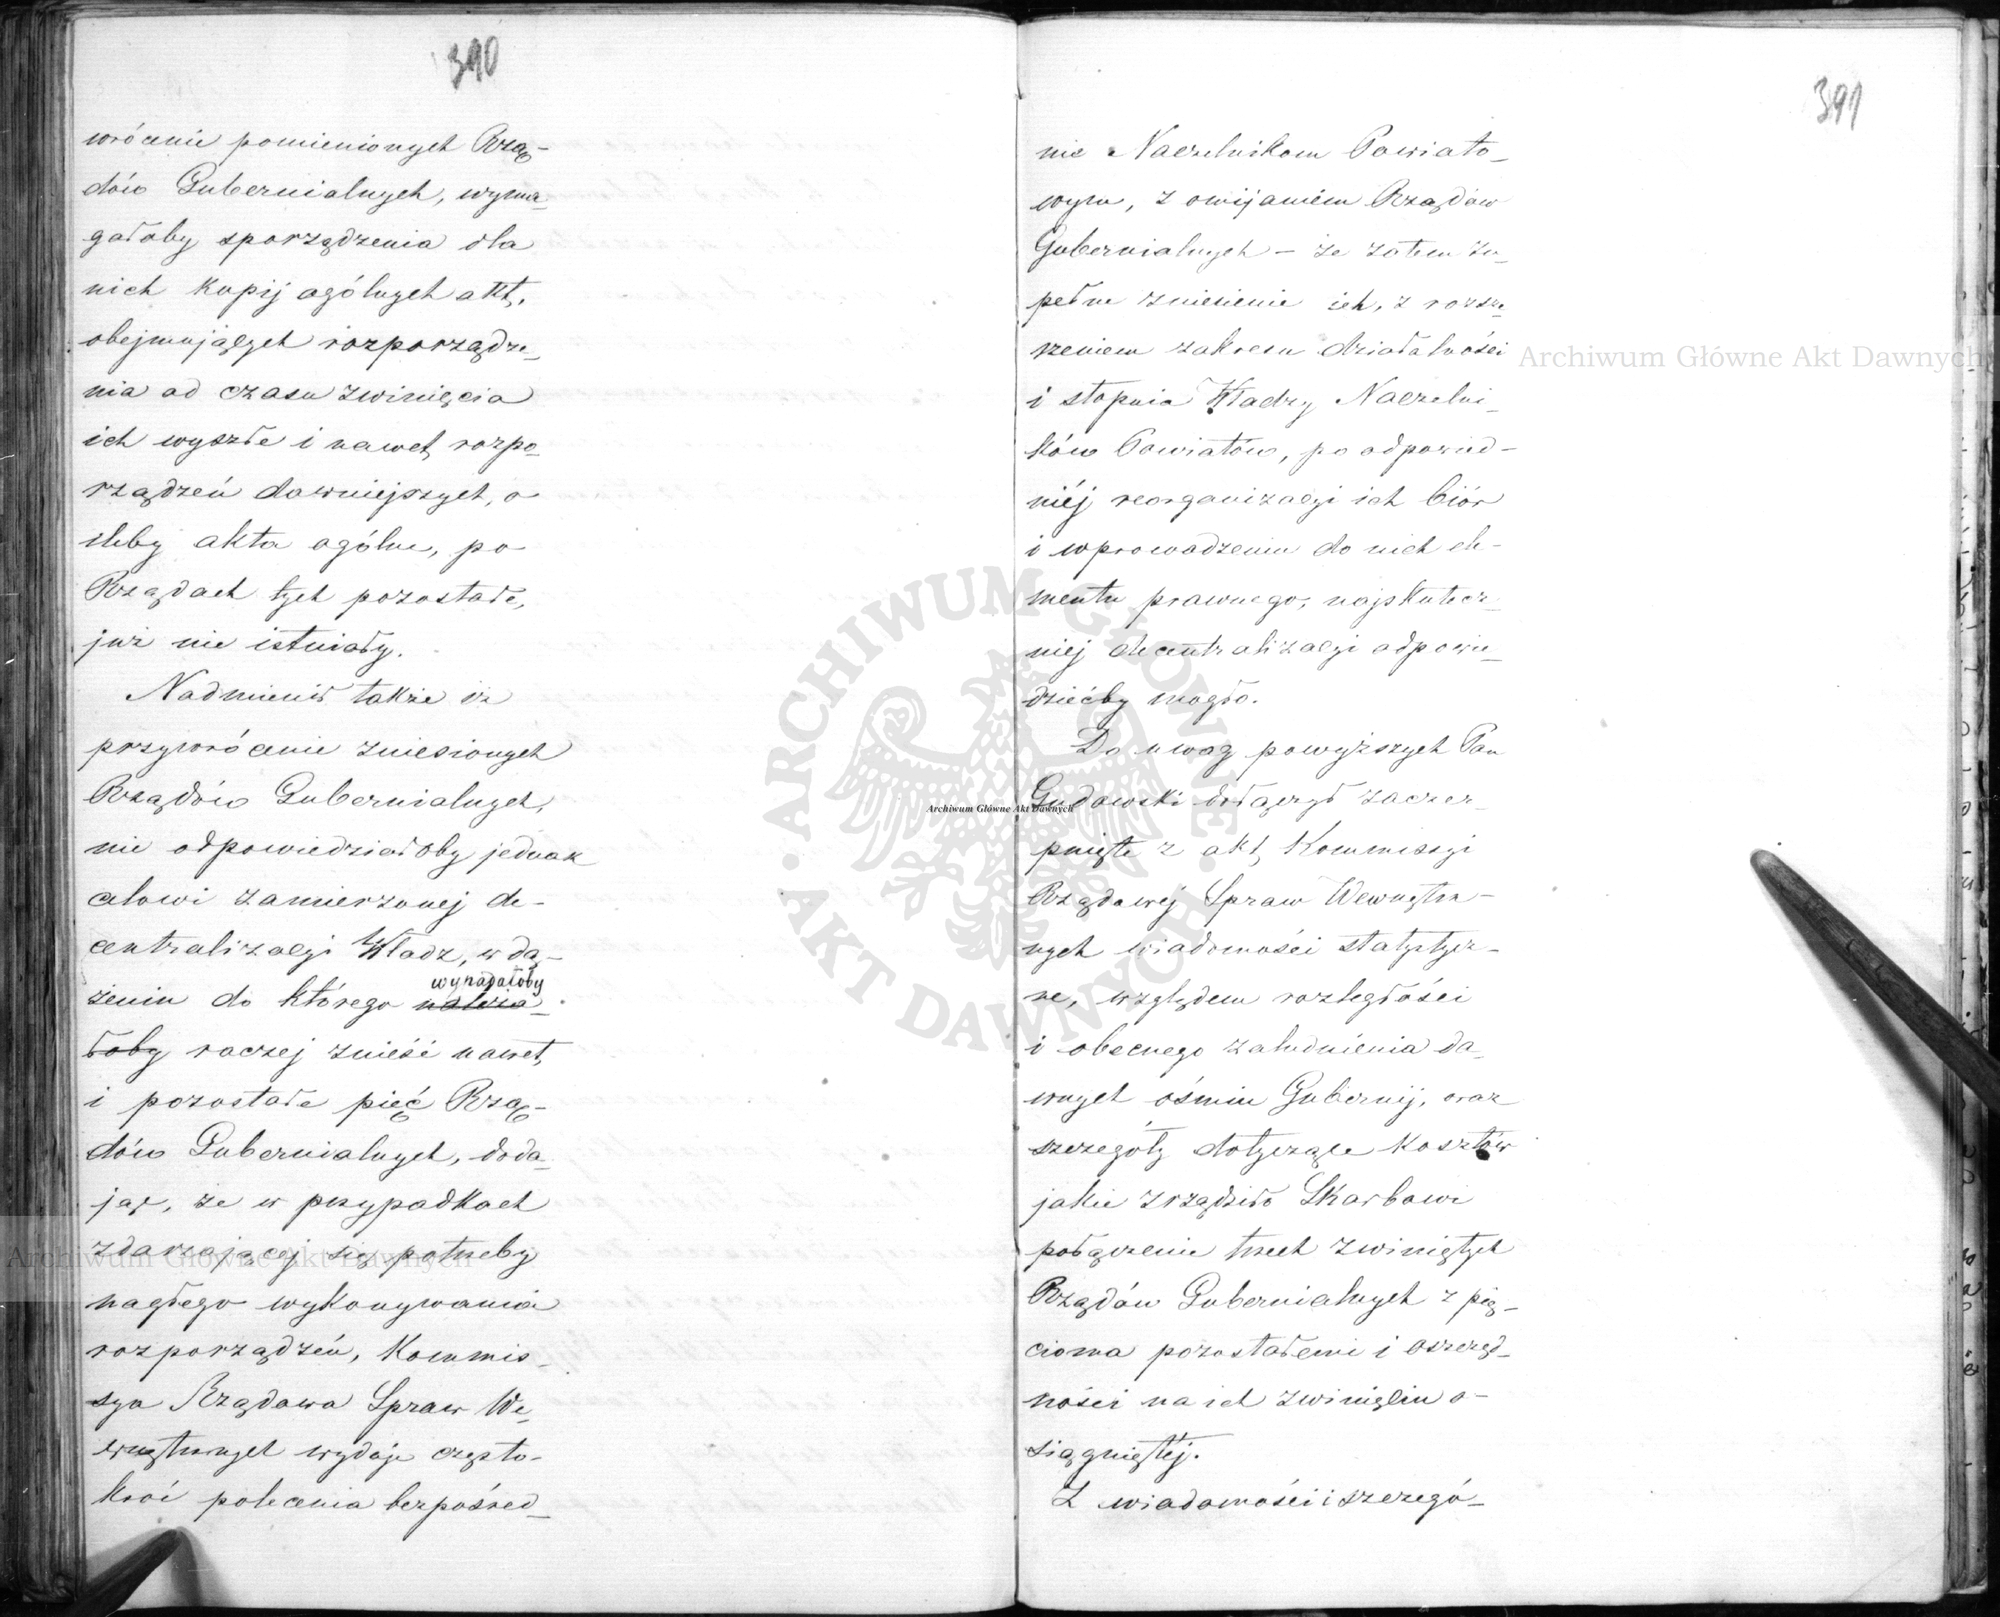 390
wrócenie pomienionych Rzą-
dów Gubernialnych, wyma-
gałoby sporządzenia dla
nich kopij ogólnych akt,
obejmujących rozporządze-
nia od czasu zwinięcia
ich wyszłe i nawet rozpo-
rządzeń dawniejszych, o
ileby akta ogólne, po
Rządach tych pozostałe,
już nie istniały.
Nadmienił także iż
przywrócenie zniesionych
Rządów Gubernialnych,
nie odpowiedziałoby jednak
celowi zamierzonej de-
centralizacyi Władz, w dą-
żeniu do którego należa- wypadałoby
łoby raczej znieść nawet,
i pozostałe pięć Rzą-
dów Gubernialnych, doda-
jąc, że w przypadkach
zdarzającej się potrzeby
nagłego wykonywania
rozporządzeń, Kommis-
sya Rządowa Spraw We-
wnętrznych wydaje często-
kroć polecenia bezpośred-
391
nie Naczelnikom Powiato-
wym, z omijaniem Rządów
Gubernialnych – że zatem zu-
pełne zniesienie ich, z rozsze-
rzeniem zakresu działalności
i stopnia Władzy Naczelni-
ków Powiatów, po odpowied-
niéj reorganizacyi ich biór
i wprowadzeniu do nich ele-
mentu prawnego, najskutecz-
niej decentralizacyi odpowie-
dziećby mogło.
Do uwag powyższych Pan
Gudowski dołączył zaczer-
pnięte z akt, Kommissyi
Rządowéj Spraw Wewnętrz-
nych wiadomości statystycz-
ne, względem rozległości
i obecnego zaludnienia da-
wnych ośmiu Gubernij, oraz
szczegóły dotyczące kosztów
jakie zrządziło Skarbowi
połączenie trzech zwiniętych
Rządów Gubernialnych z pię-
cioma pozostałemi i oszczęd-
ności na ich zwinięciu o-
siągniętéj.
Z wiadomości i szczegó-
Archiwum Główne Akt Dawnych
Archiwum Główne Akt Dawnych
Archiwum Główne Akt Dawnych
ARCHIWUM GŁÓWNE AKT DAWNYCH